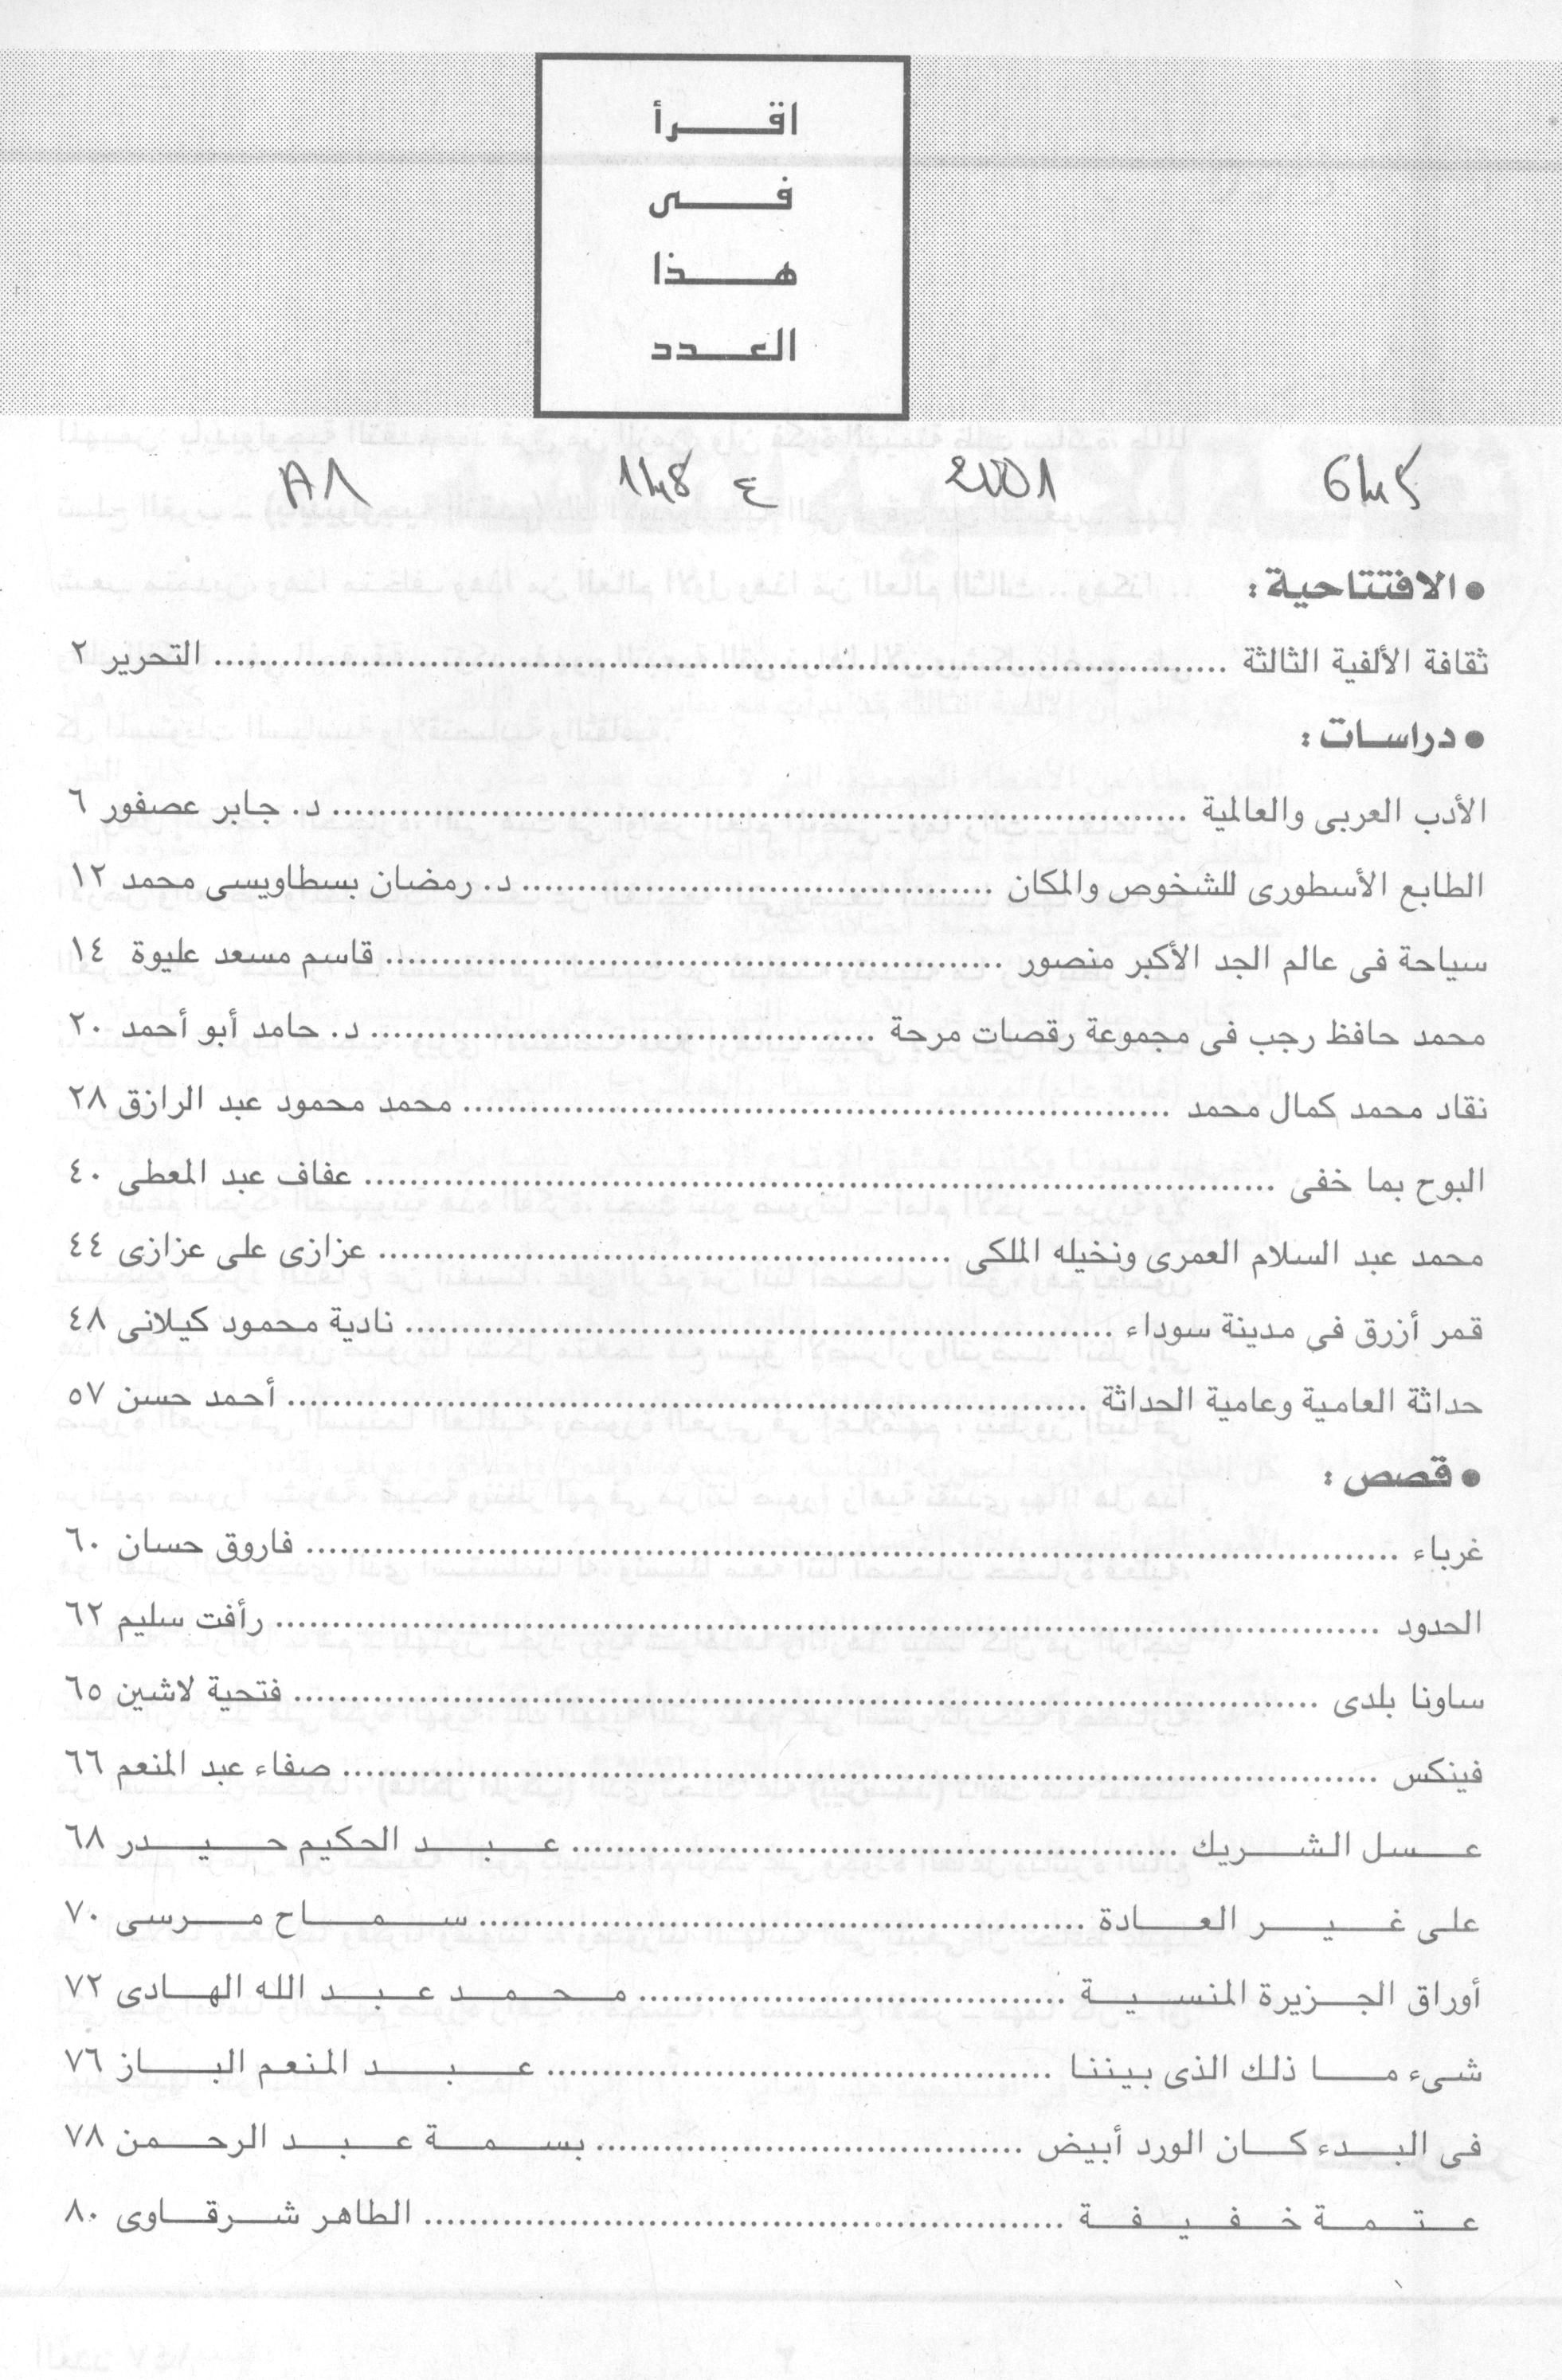 اقرأ
فى
هذا
العدد
2001
• الافتتاحية :
ثقافة الألفية الثالثة ........ التحرير ٢
• دراسات :
الأدب العربى والعالمية ........ د. جابر عصفور ٦
الطابع الأسطورى للشخوص والمكان ........ د. رمضان بسطاويسى محمد ١٢
سياحة فى عالم الجد الأكبر منصور ........ قاسم مسعد عليوة ١٤
محمد حافظ رجب فى مجموعة رقصات مرحة ........ د. حامد أبو أحمد ٢٠
نقاد محمد كمال محمد ........ محمد محمود عبد الرازق ٢٨
البوح بما خفى ........ عفاف عبد المعطى ٤٠
محمد عبد السلام العمرى ونخيله الملكى ........ عزازى على عزازى ٤٤
قمر أزرق فى مدينة سوداء ........ نادية محمود كيلانى ٤٨
حداثة العامية وعامية الحداثة ........ أحمد حسن ٥٧
• قصص :
غرباء ........ فاروق حسان ٦٠
الحدود ........ رأفت سليم ٦٢
ساونا بلدى ........ فتحية لاشين ٦٥
فينكس ........ صفاء عبد المنعم ٦٦
عسل الشريك ........ عبد الحكيم حيدر ٦٨
على غير العادة ........ سماح مرسى ٧٠
أوراق الجزيرة المنسية ........ محمد عبد الله الهادى ٧٢
شىء ما ذلك الذى بيننا ........ عبد المنعم الباز ٧٦
فى البدء كان الورد أبيض ........ بسمة عبد الرحمن ٧٨
عتمة خفيفة ........ الطاهر شرقاوى ٨٠